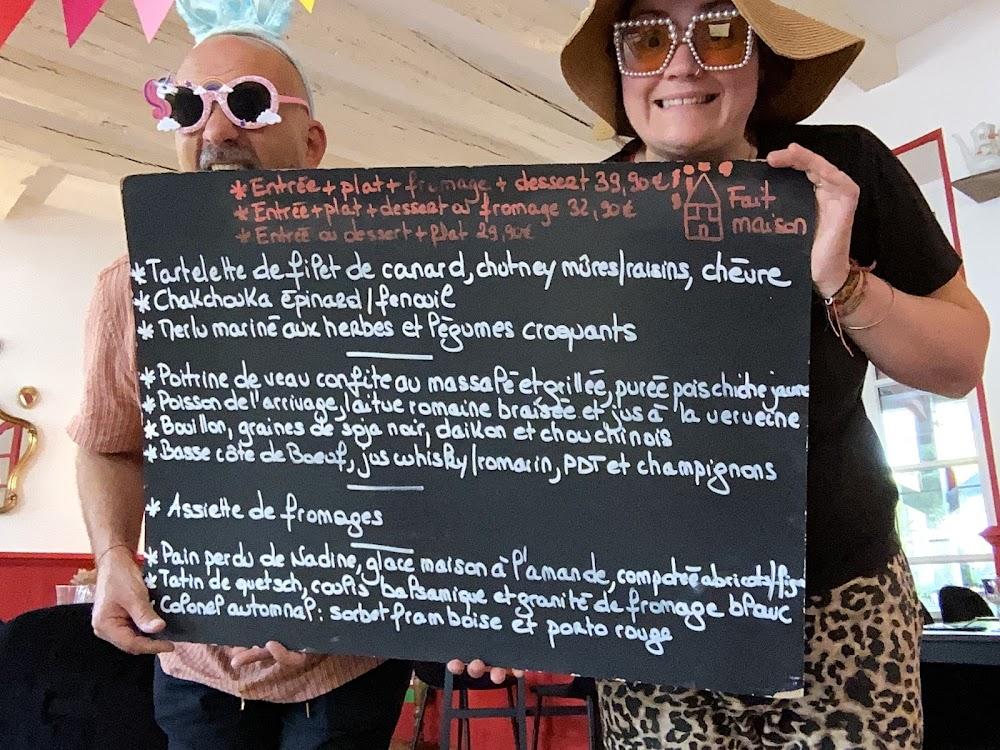 * Entrée + plat + fromage + dessert 39,90€
* Entrée + plat + dessert ou fromage 32,90€
* Entrée ou dessert + plat 29,90€
Fait
maison
* Tartelette de filet de canard, chutney mûres/raisins, chèvre
* Chakchouka épinard/fenouil
* Merlu mariné aux herbes et légumes croquants
* Poitrine de veau confite au massalé et grillée, purée pois chiche jaune
* Poisson de l'arrivage, laitue romaine braisée et jus à la verveine
* Bouillon, graines de soja noir, daikon et chou chinois
* Basse côte de Boeuf, jus whisky/romarin, PDT et champignons
* Assiette de fromages
* Pain perdu de Nadine, glace maison à l'amande, compotée abricots/figs
* Tatin de quetsch, coulis balsamique et granité de fromage blanc
* Colonel automnal : sorbet framboise et porto rouge